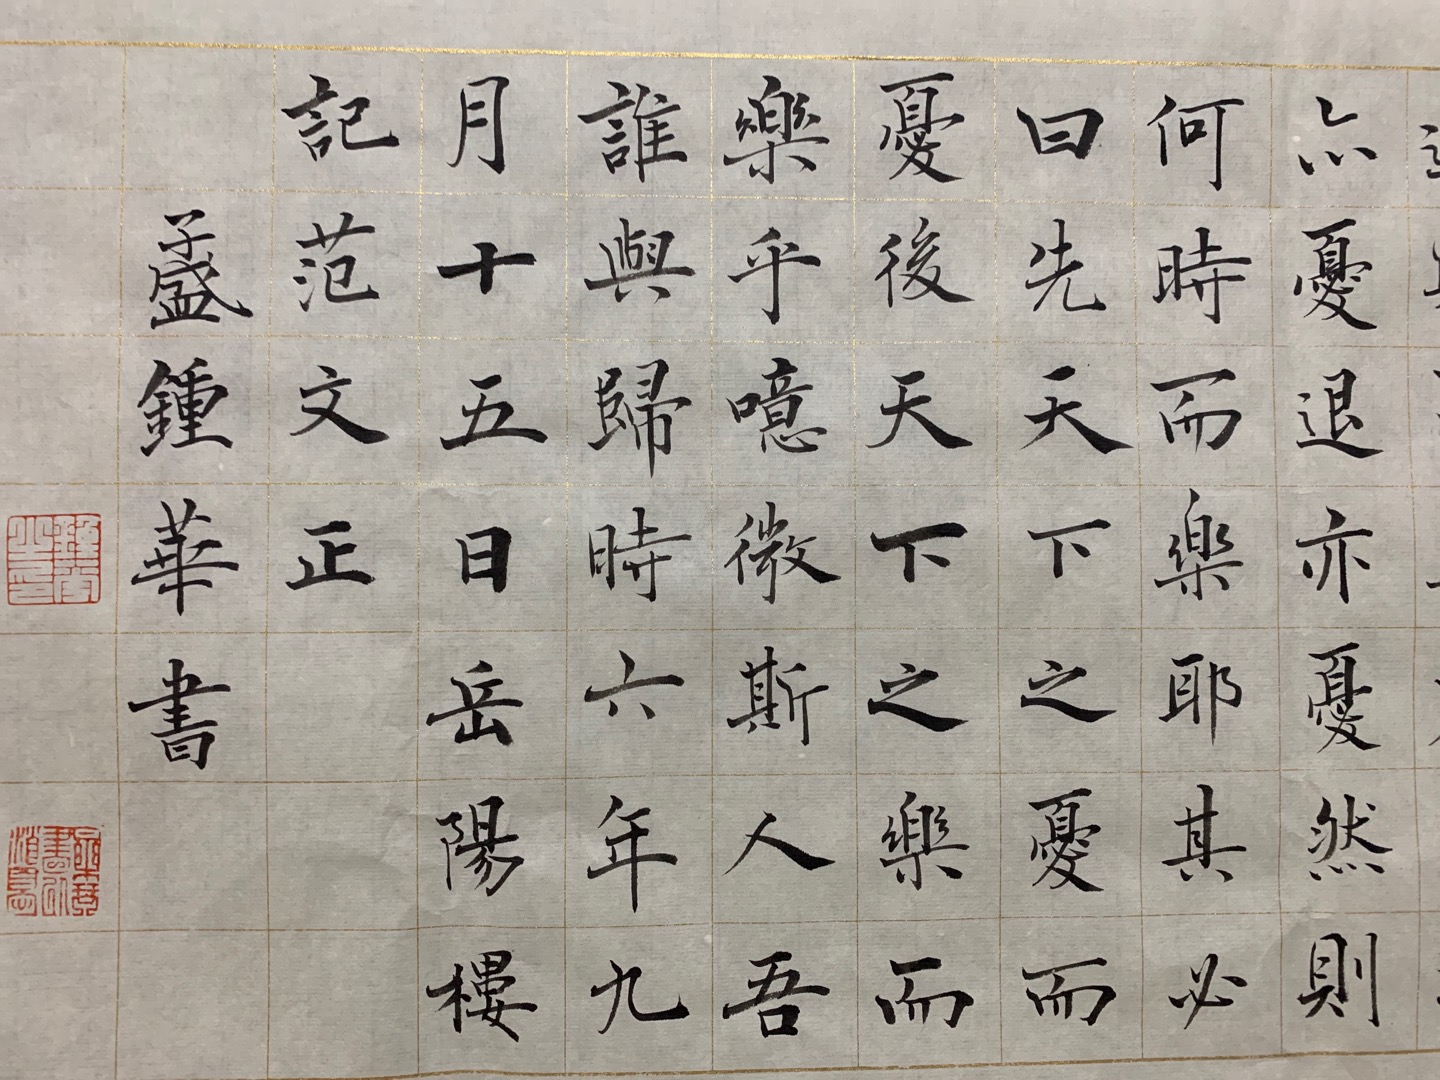 亦憂退亦憂然則
何時而樂耶其必
曰先天下之憂而
憂後天下之樂而
樂乎噫微斯人吾
誰與歸時六年九
月十五日岳陽樓
記范文正
孟鍾華書